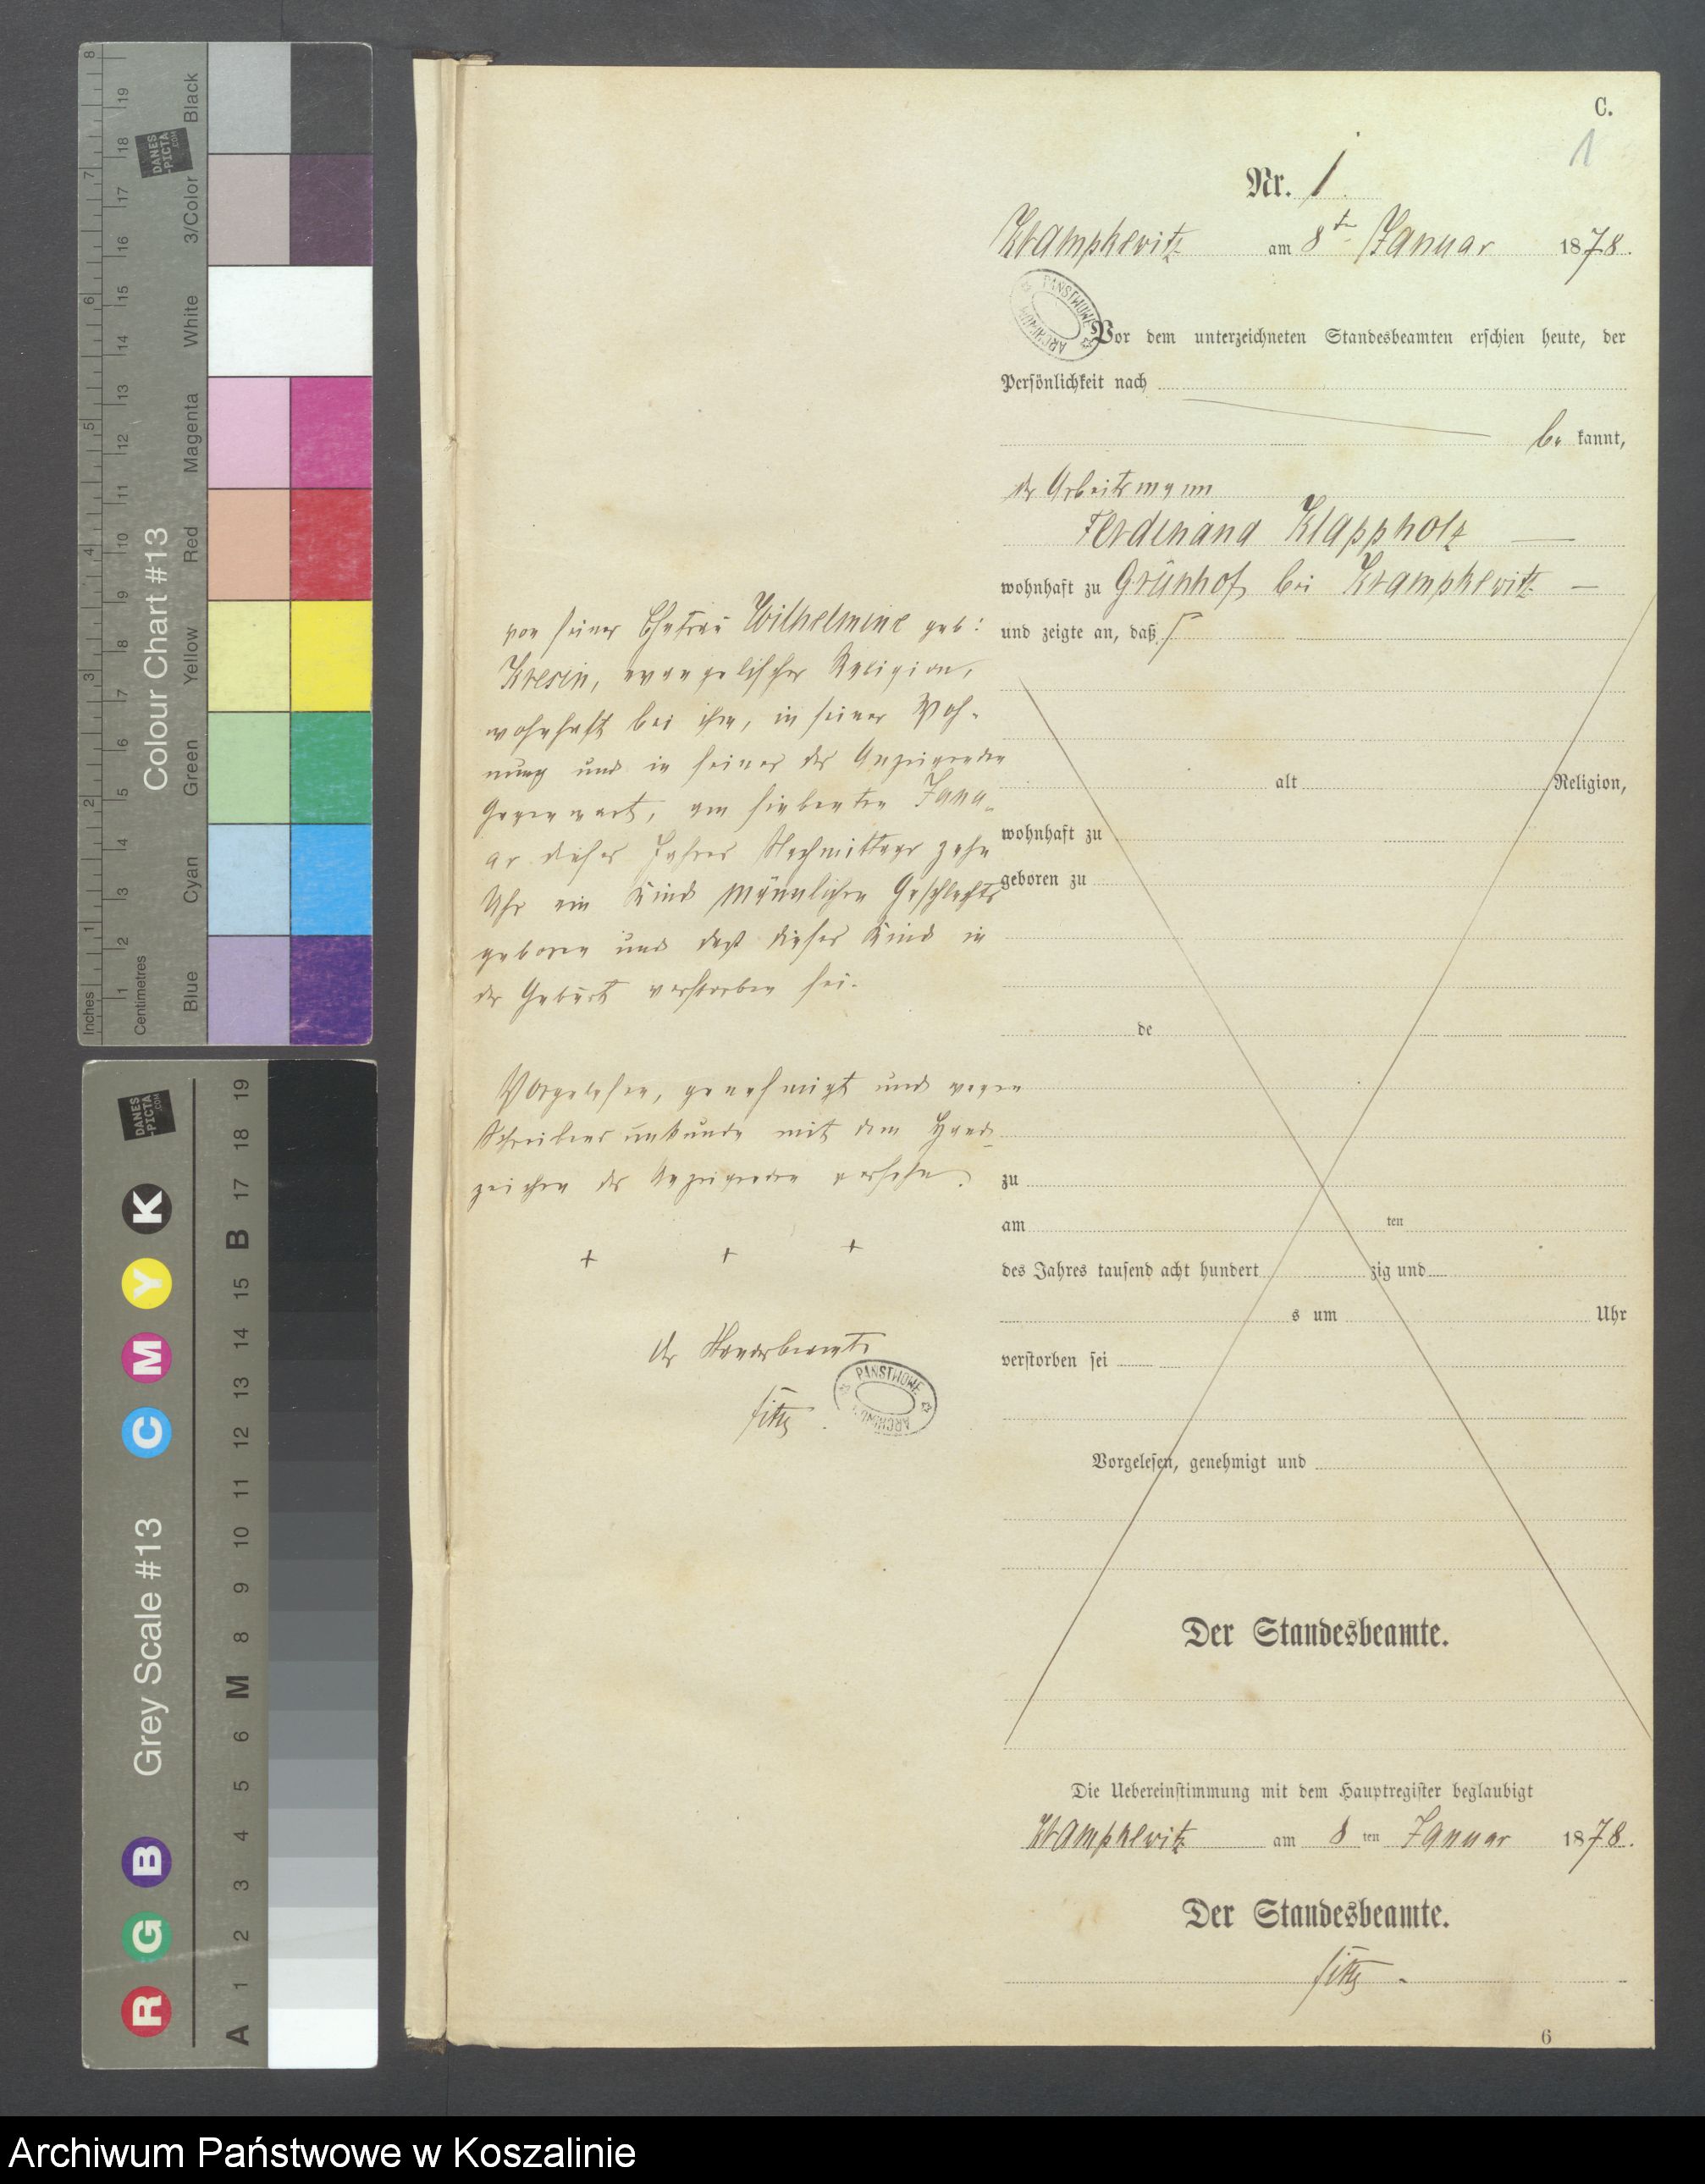 C.
1
Nr. 1.
Krampkewitz am 8ten Januar 1878.
Vor dem unterzeichneten Standesbeamten erschien heute, der
Persönlichkeit nach
be kannt,
der Arbeitsmann
Ferdinand Klappholz
wohnhaft zu Grünhof bei Krampkewitz
und zeigte an, daß
von seiner Ehefrau Wilhelmine geb:
Kresin, evangelischer Religion,
wohnhaft bei ihm, in seiner Woh-
nung und in seiner des Anzeigenden
Gegenwart, am siebenten Janu-
ar dieses Jahres Nachmittags zehn
Uhr ein Kind männlichen Geschlechts
geboren und daß dieses Kind in
der Geburt verstorben sei.
Vorgelesen, genehmigt und wegen
Schreibens unkunde mit dem Hand-
zeichen des Anzeigenden versehn.
+ + +
Der Standesbeamte
PAŃSTWOWE ARCHIWUM
alt Religion,
wohnhaft zu
geboren zu
de
zu
am ten
des Jahres tausend acht hundert zig und
s um Uhr
verstorben sei
Vorgelesen, genehmigt und
Der Standesbeamte.
Die Uebereinstimmung mit dem Hauptregister beglaubigt
Krampkewitz am 8 ten Januar 1878.
Der Standesbeamte.
6
PAŃSTWOWE ARCHIWUM
Inches
Centimetres
Colour Chart #13
Blue Cyan Green Yellow Red Magenta White 3/Color Black
DANES-PICTA.COM
Grey Scale #13
R G B C M Y K
A 1 2 3 4 5 6 M 8 9 10 11 12 13 14 15 B 17 18 19
DANES-PICTA.COM
Archiwum Państwowe w Koszalinie